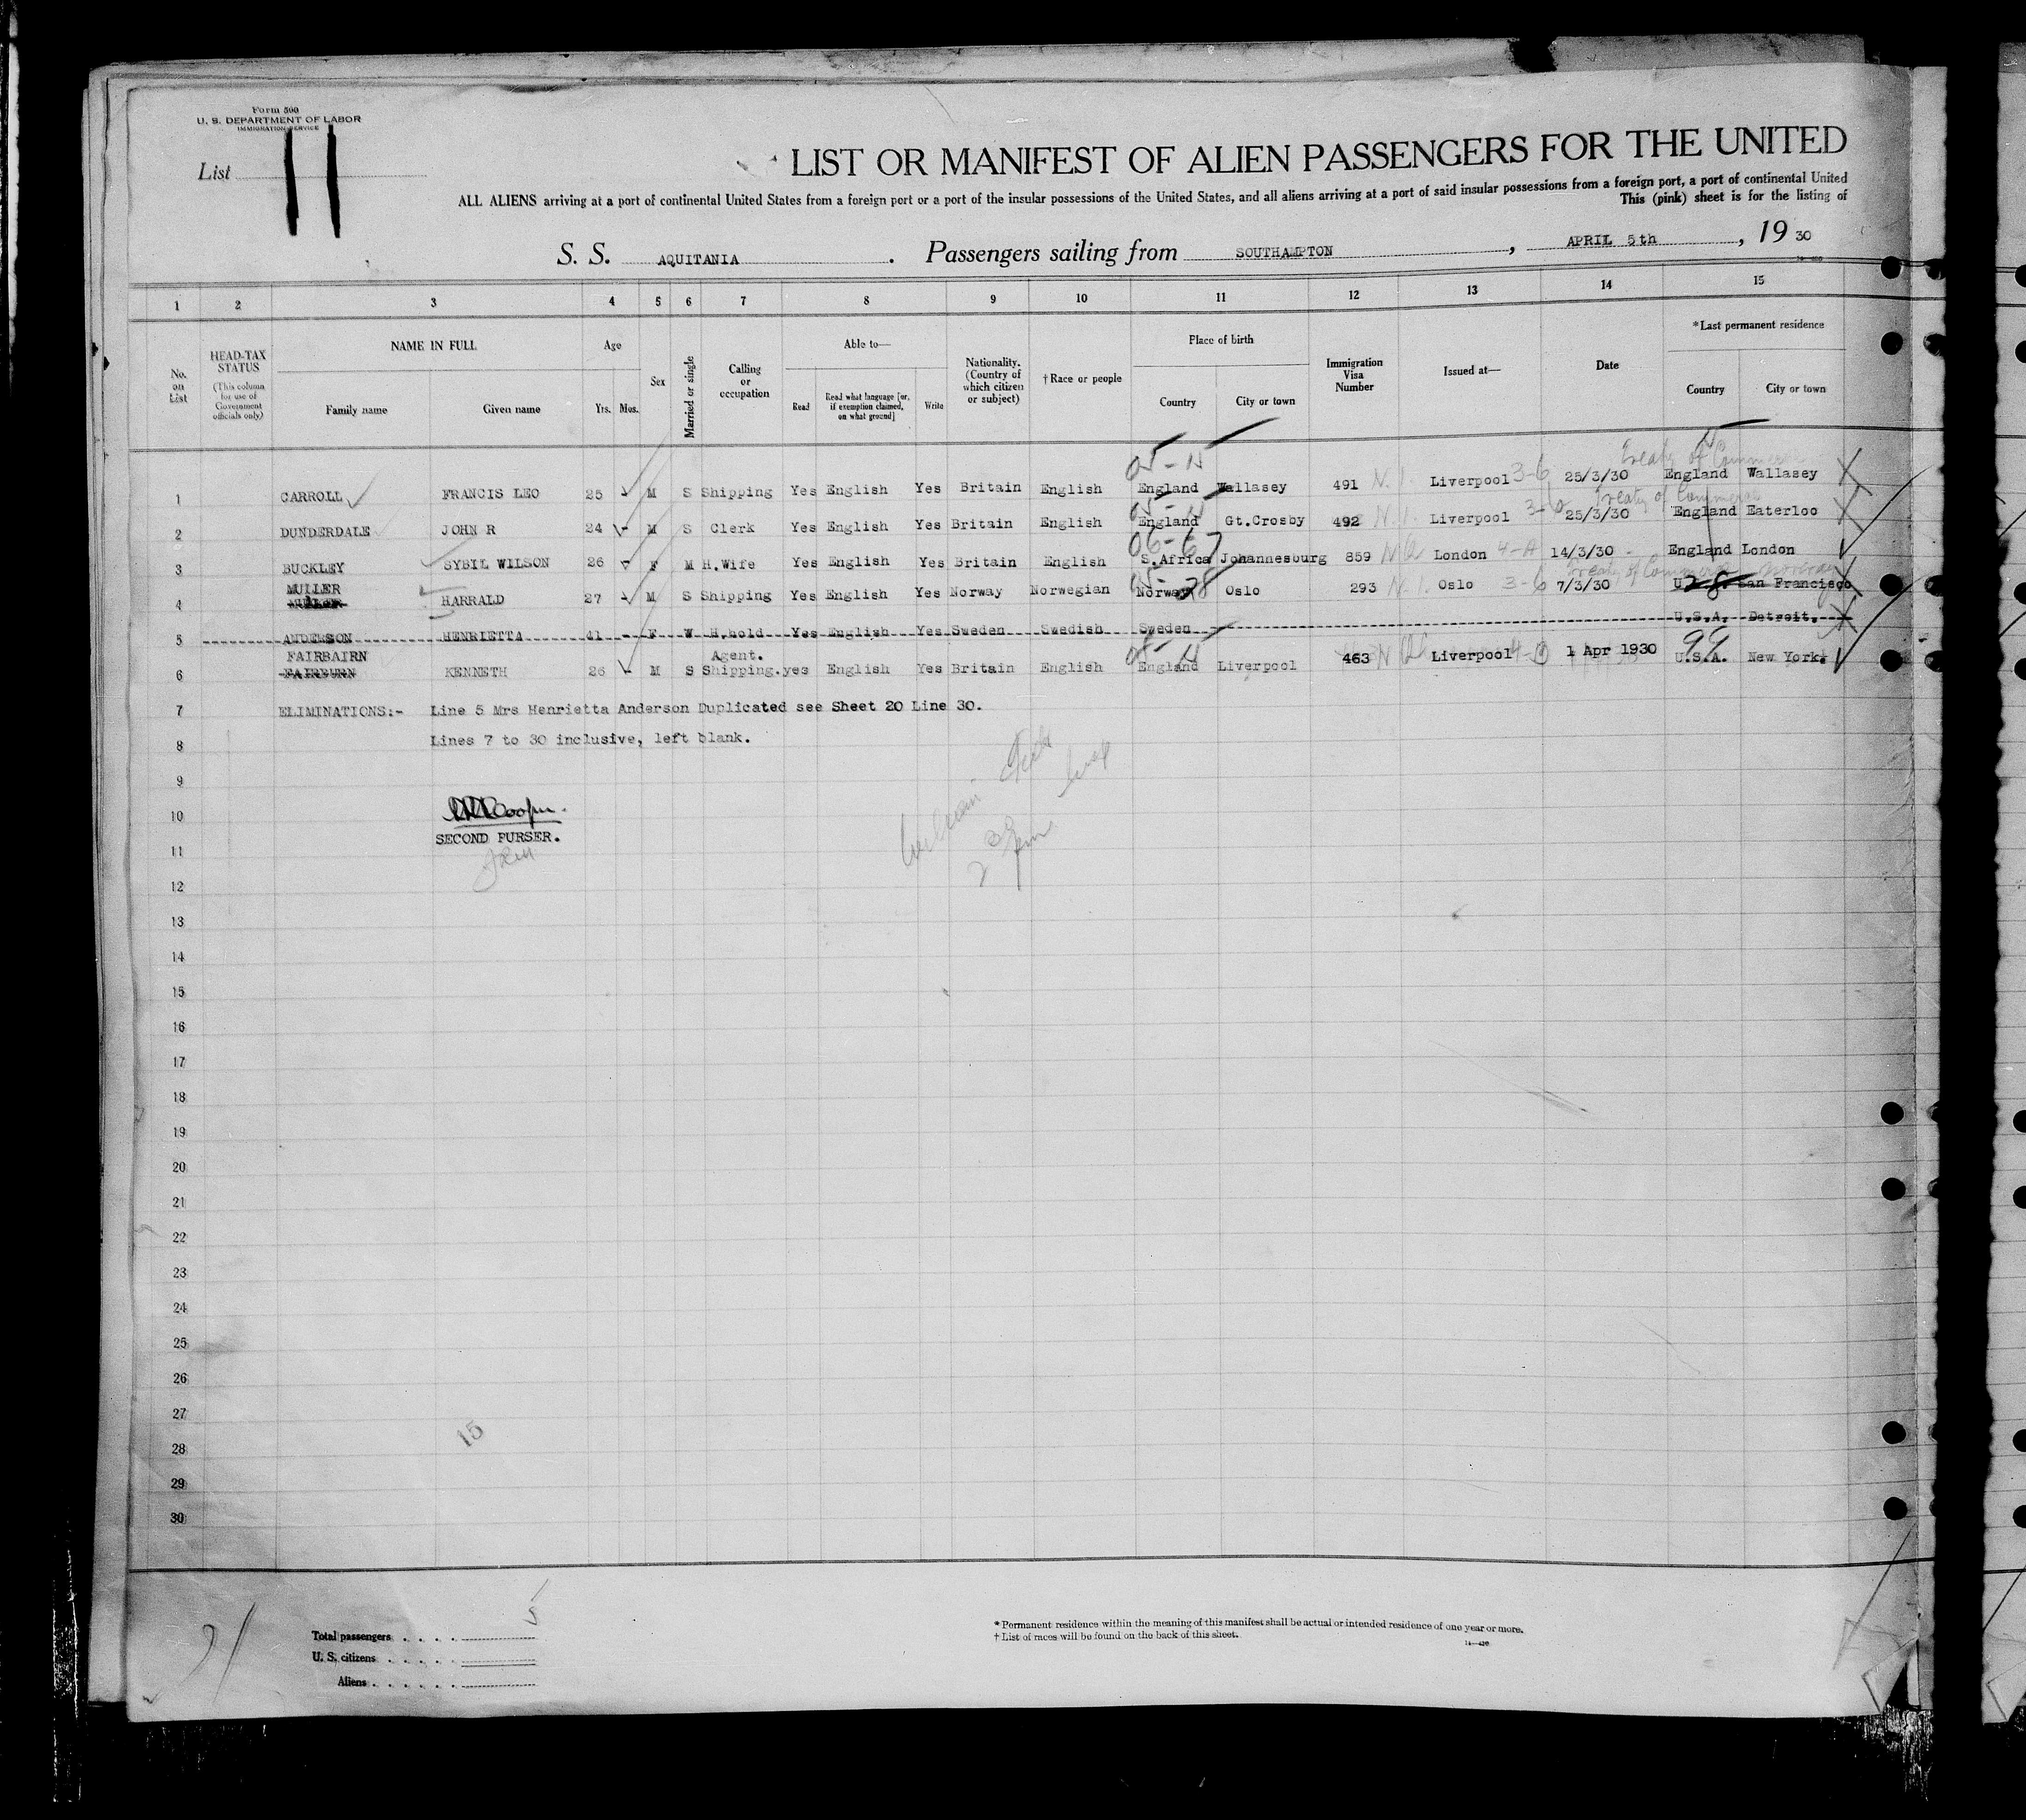 Form 500
U. S. DEPARTMENT OF LABOR
IMMIGRATION SERVICE
List 11
LIST OR MANIFEST OF ALIEN PASSENGERS FOR THE UNITED
ALL ALIENS arriving at a port of continental United States from a foreign port or a port of the insular possessions of the United States, and all aliens arriving at a port of said insular possessions from a foreign port, a port of continental United
This (pink) sheet is for the listing of
S. S. AQUITANIA. Passengers sailing from SOUTHAMPTON, APRIL 5th, 19 30
1 2 3 4 5 6 7 8 9 10 11 12 13 14 15
No. on List
HEAD-TAX STATUS (This column for use of Government officials only)
NAME IN FULL Family name Given name
Age Yrs. Mos.
Sex
Married or single
Calling or occupation
Able to— Read Read what language [or, if exemption claimed, on what ground] Write
Nationality. (Country of which citizen or subject)
†Race or people
Place of birth Country City or town
Immigration Visa Number
Issued at—
Date
*Last permanent residence Country City or town
05-11
Treaty of Commerce
1 CARROLL FRANCIS LEO 25 - M S Shipping Yes English Yes Britain English England Wallasey 491 N.1. Liverpool 3-6 25/3/30 England Wallasey
Treaty of Commerce
2 DUNDERDALE JOHN R 24 - M S Clerk Yes English Yes Britain English England Gt.Crosby 492 N.1. Liverpool 3-6 25/3/30 England Eaterloo
06-67
3 BUCKLEY SYBIL WILSON 26 - F M H.Wife Yes English Yes Britain English S.Africa Johannesburg 859 London 4-A 14/3/30 - England London
Treaty of Commerce
MULLER
4 HARRALD 27 - M S Shipping Yes English Yes Norway Norwegian Norway Oslo 293 N.1. Oslo 3-6 7/3/30 San Francisco
5 ANDERSON HENRIETTA 41 - F W H.hold Yes English Yes Sweden Swedish Sweden U.S.A. Detroit.
FAIRBAIRN Agent. 99
6 FAIRBURN KENNETH 26 - M S Shipping. yes English Yes Britain English England Liverpool 463 Liverpool 1 Apr 1930 U.S.A. New York.
7 ELIMINATIONS:- Line 5 Mrs Henrietta Anderson Duplicated see Sheet 20 Line 30.
8 Lines 7 to 30 inclusive, left blank.
9
10 Cooper.
SECOND PURSER.
11
12
13
14
15
16
17
18
19
20
21
22
23
24
25
26
27
15
28
29
30
5
Total passengers
U. S. citizens
Aliens
* Permanent residence within the meaning of this manifest shall be actual or intended residence of one year or more.
† List of races will be found on the back of this sheet.